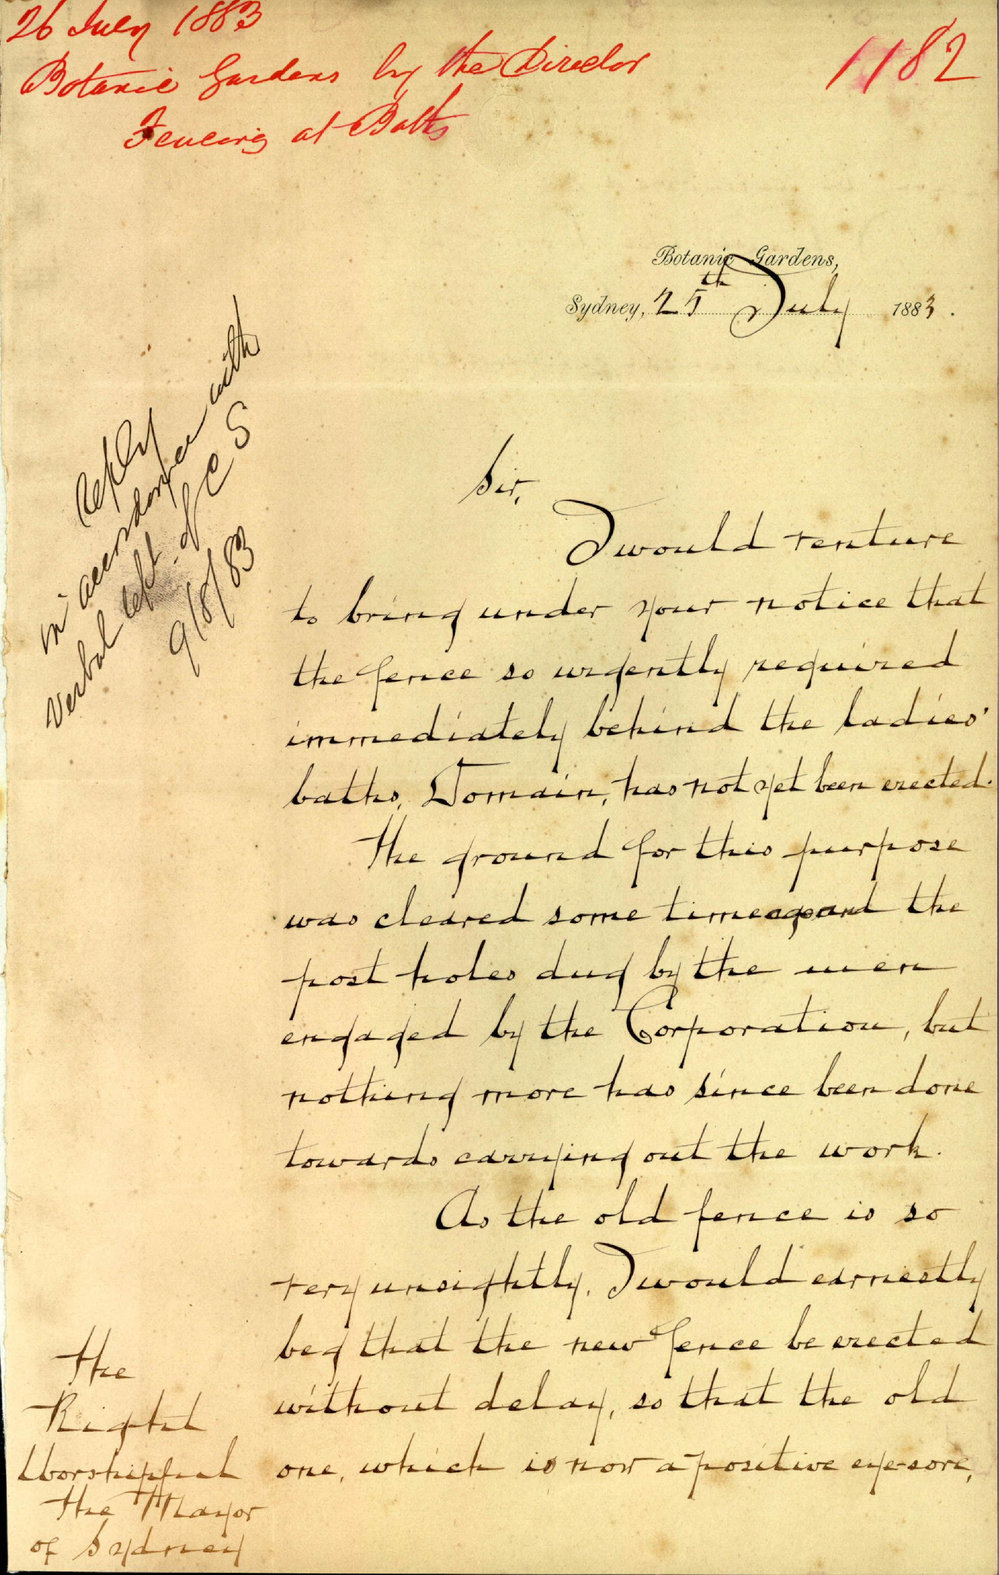 26 July 1883
Botanic Gardens by the Director
Fencing at Baths
1182
Botanic Gardens,
Sydney, 25th July 1883.
reply
in accordance with
verbal
of C S
9/8/83
Sir,
I would venture
to bring under your notice that
the fence so urgently required
immediately behind the ladies'
baths, Domain, has not yet been erected.
The ground for this purpose
was cleared some time ago and the
post holes dug by the men
engaged by the Corporation, but
nothing more has since been done
towards carrying out the work.
As the old fence is so
very unsightly, I would earnestly
beg that the new fence be erected
without delay, so that the old
one, which is now a positive eye-sore,
The
Right
Worshipful
the Mayor
of Sydney